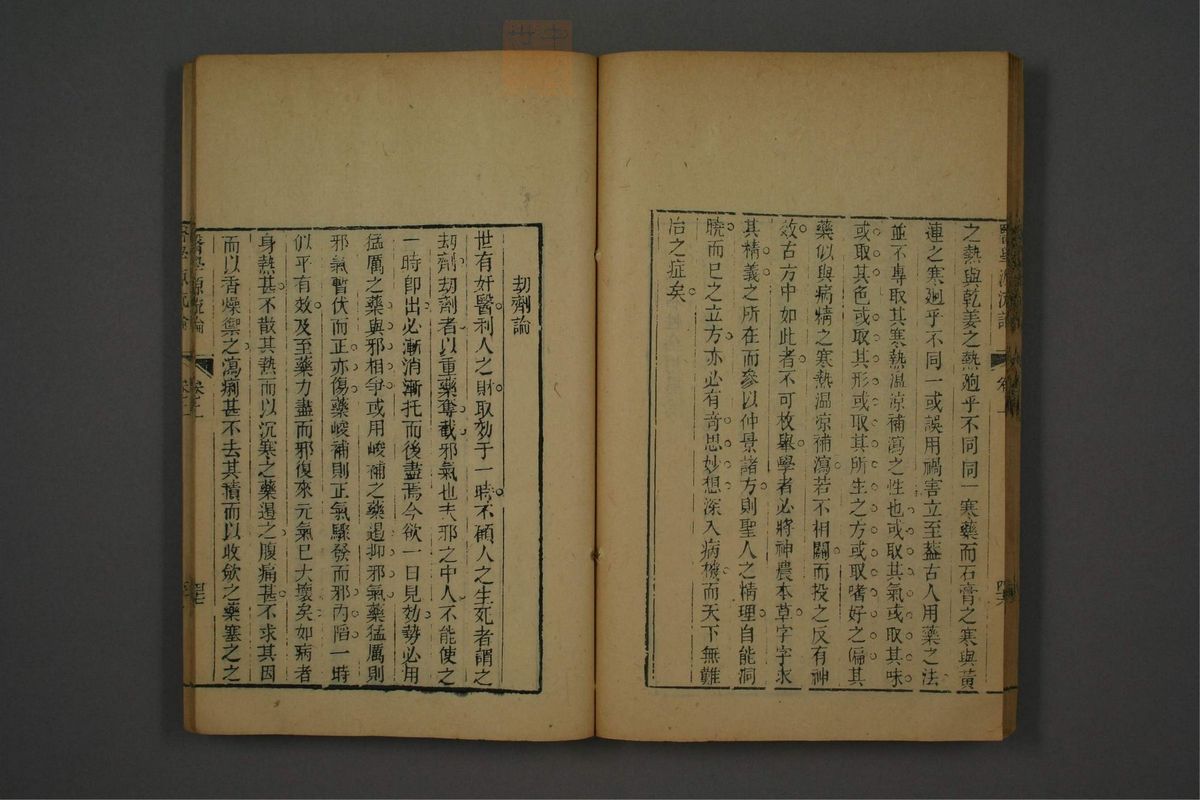 之熱與乾姜之熱廻乎不同同一寒藥而石膏之寒與黃
連之寒廻乎不同一或誤用禍害立至蓋古人用藥之法
並不專取其寒熱温涼補瀉之性也或取其氣或取其味
或取其色或取其形或取其所生之方或取嗜好之偏其
藥似與病情之寒熱温涼補瀉若不相關而投之反有神
效古方中如此者不可枚舉學者必將神農本草字字求
其精義之所在而參以仲景諸方則聖人之情理自能洞
曉而已之立方亦必有奇思妙想深入病機而天下無難
治之症矣
刼劑論
世有奸醫利人之財取効于一時不顧人之生死者謂之
刼劑刼劑者以重藥奪截邪氣也夫邪之中人不能使之
一時即出必漸消漸托而後盡焉今欲一日見効勢必用
猛厲之藥與邪相爭或用峻補之藥遏抑邪氣藥猛厲則
邪氣暫伏而正亦傷藥峻補則正氣驟發而邪內陷一時
似乎有效及至藥力盡而邪復來元氣已大壞矣如病者
身熱甚不散其熱而以沉寒之藥遏之腹痛甚不求其因
而以香燥禦之瀉痢甚不去其積而以收歛之藥塞之之
醫學源流論
卷之二